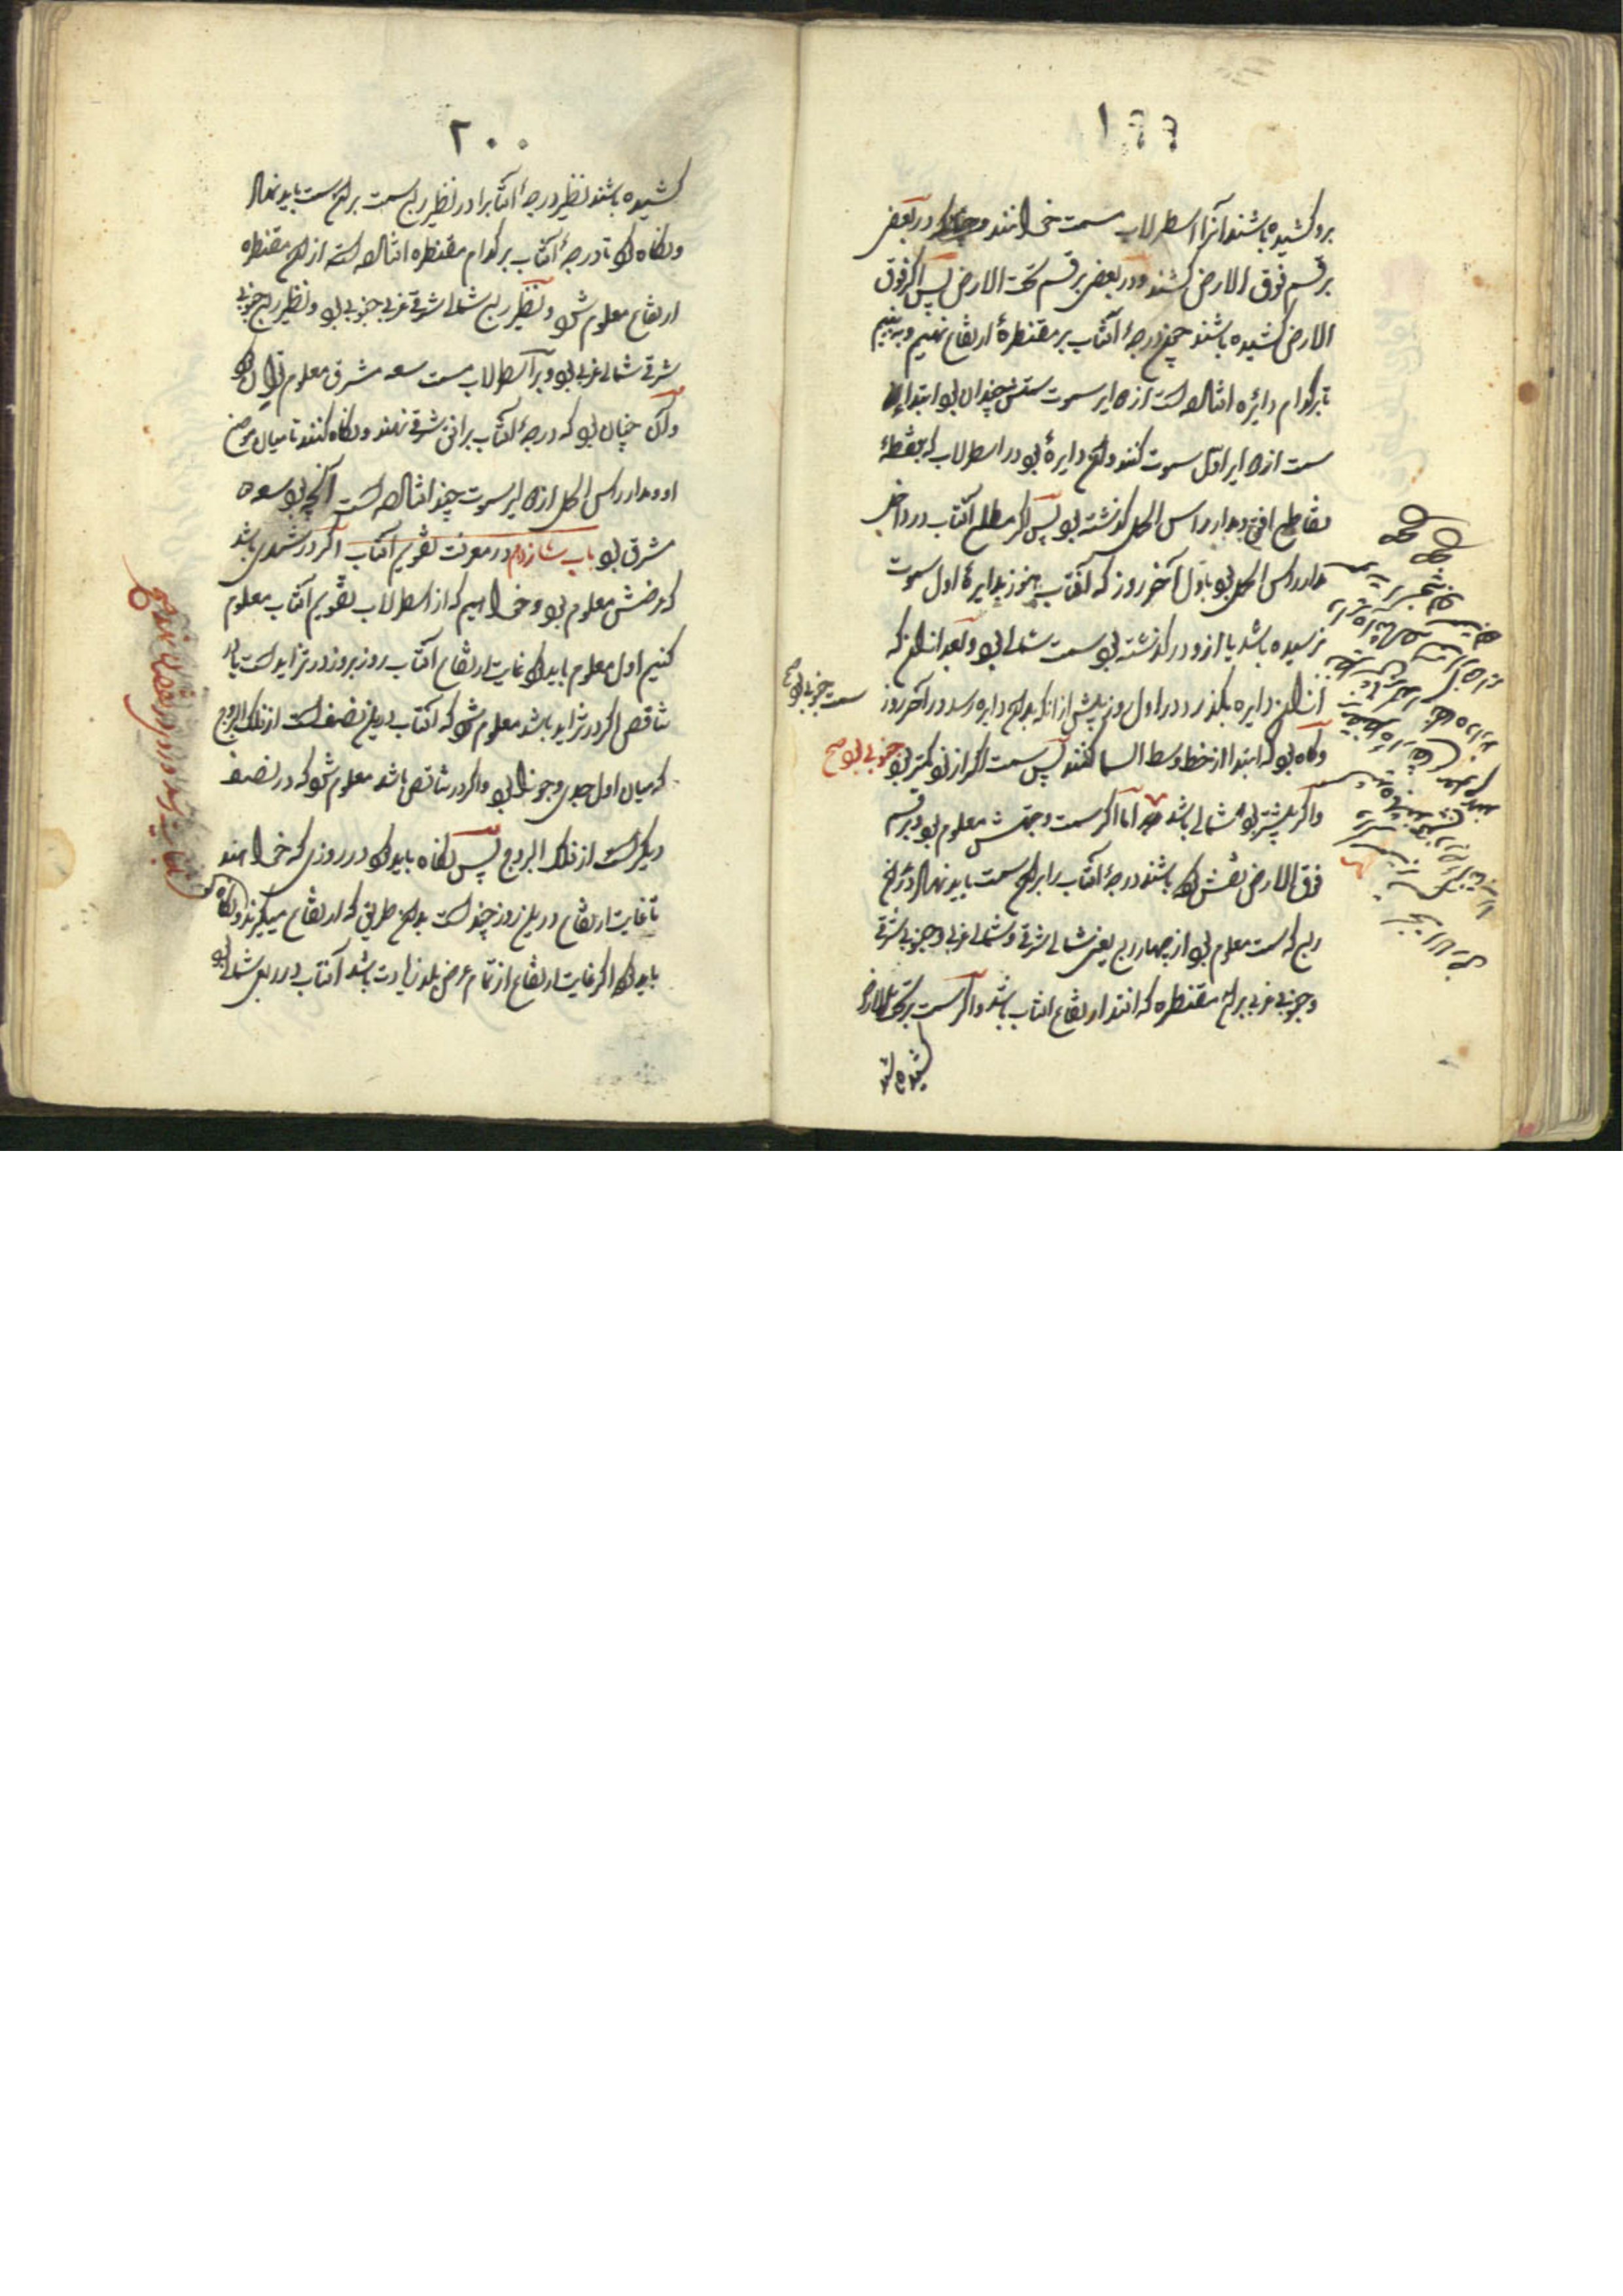 ۱۹۹
برو کشیده باشند آنرا اسطرلاب سمت خوانند و در بعضی
بر قسم فوق الارض کشند و در بعضی بر قسم تحت الارض پس اگر فوق
الارض کشیده باشند چون درجهٔ آفتاب بر مقنطرهٔ ارتفاع نهیم و ببینیم
تا بر کدام دایره افتاده است از دوایر سموت سمتش چندان بود ابتداء
سمت از دوایر اول سموت کنند و آن دایرهٔ بود در اسطرلاب که بنقطهٔ
تقاطع افق و مدار راس الحمل گذشته بود پس اگر مطلع آفتاب در داخل
مدار راس الحمل بود باول آخر روز که آفتاب هنوز بدایرهٔ اول سموت
نرسیده باشد یا ازو در گذشته بود سمت شمالی بود و بعد از آن که
از آن دایره بگذرد در اول روز پیش از آنکه بدان دایره رسد در آخر روز
سمت جنوبی بود صح
و گاه بود که ابتدا از خط وسط السما کنند پس سمت اگر از نود کمتر بود جنوبی بود صح
و اگر بیشتر بود شمالی باشد اما اگر سمت و جهتش معلوم بود و بر قسم
فوق الارض نقش کرده باشند درجهٔ آفتاب را بر آن سمت باید نهاد در آن
ربع که سمت معلوم بود از چهار ربع یعنی شمالی شرقی و شمالی غربی و جنوبی شرقی
و جنوبی غربی بر آن مقنطره که افتد ارتفاع افتاب باشد و اگر سمت بر تحت الارض
کشیده باشند
۲۰۰
کشیده باشند نظیر درجهٔ آفتاب را در نظیر ربع سمت بر آن سمت باید نهاد
و نگاه کرد تا درجهٔ آفتاب بر کدام مقنطره افتاده است از آن مقنطره
ارتفاع معلوم شود و نظیر ربع شمالی شرقی غربی جنوبی بود و نظیر ربع جنوبی
شرقی شمالی غربی بود و بر اسطرلاب سمت سعه مشرق معلوم توان کرد
و آن چنان بود که درجهٔ آفتاب بر افق شرقی نهند و نگاه کنند تا میان موضع
او و مدار راس الحمل از دوایر سموت چند افتاده است آنچه بود سعه
مشرق بود باب شانزدهم در معرفت تقویم آفتاب اگر در شهری باشد
که عرضش معلوم بود و خواهیم که از اسطرلاب تقویم آفتاب معلوم
کنیم اول معلوم باید کرد غایت ارتفاع آفتاب روز بروز در تزاید است یا در
تناقص اگر در تزاید باشد معلوم شود که آفتاب درین نصف است از فلک البروج
که میان اول جدی و جوزا بود و اگر در تناقص باشد معلوم شود که در نصف
دیگر است از فلک البروج پس نگاه باید کرد در روزی که خواهند
تا غایت ارتفاع درین روز چند است بدان طریق که ارتفاع میگیرند و نگاه
باید کرد اگر غایت ارتفاع از تمام عرض بلد زیادت باشد آفتاب در ربعی شمالی بود